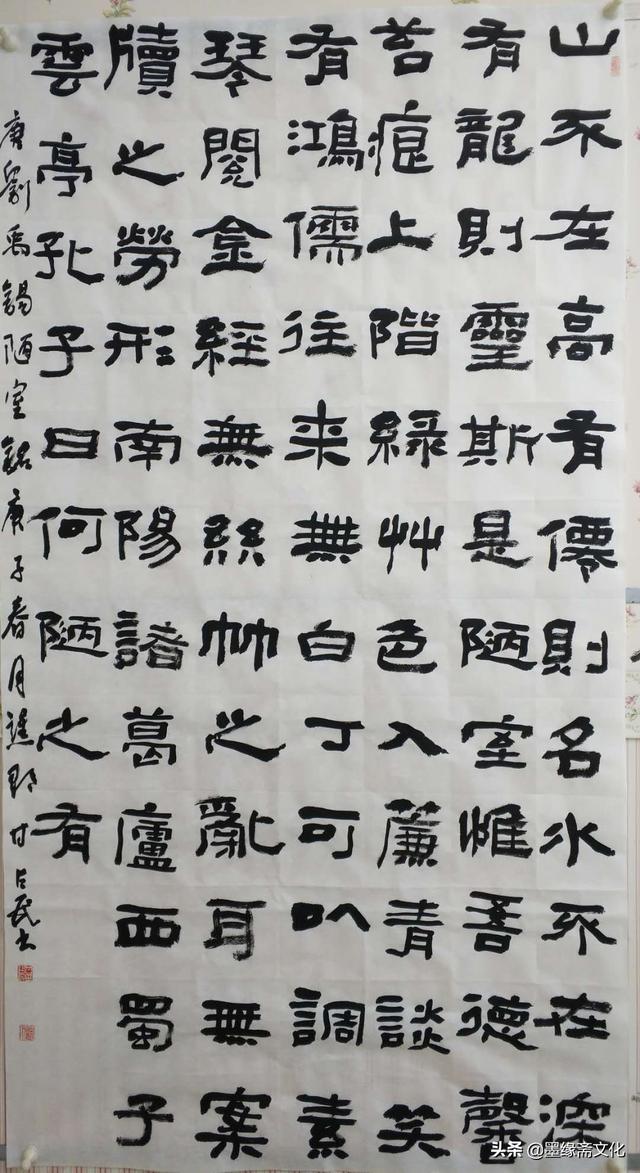 山不在高有僊則名水不在深
有龍則靈斯是陋室惟吾德馨
苔痕上階緑艸色入簾青談笑
有鴻儒往来無白丁可以調素
琴閱金經無絲竹之亂耳無案
牘之勞形南陽諸葛廬西蜀子
雲亭孔子曰何陋之有
唐劉禹錫陋室銘庚子春月譙郡甘占
头条@墨缘斋文化